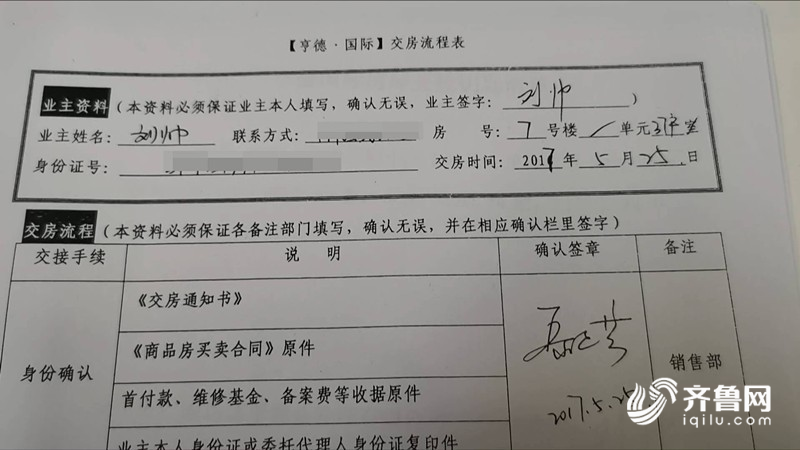 【亨德·国际】交房流程表
业主资料（本资料必须保证业主本人填写，确认无误，业主签字：刘帅）
业主姓名：刘帅 联系方式： 房 号：7号楼1单元
身份证号： 交房时间：2017年5月25日
交房流程（本资料必须保证各备注部门填写，确认无误，并在相应确认栏里签字）
交接手续 说 明 确认签章 备注
《交房通知书》
《商品房买卖合同》原件
身份确认 销售部
首付款、维修基金、备案费等收据原件
2017.5.25
业主本人身份证或委托代理人身份证复印件
齐鲁网
iqilu.com